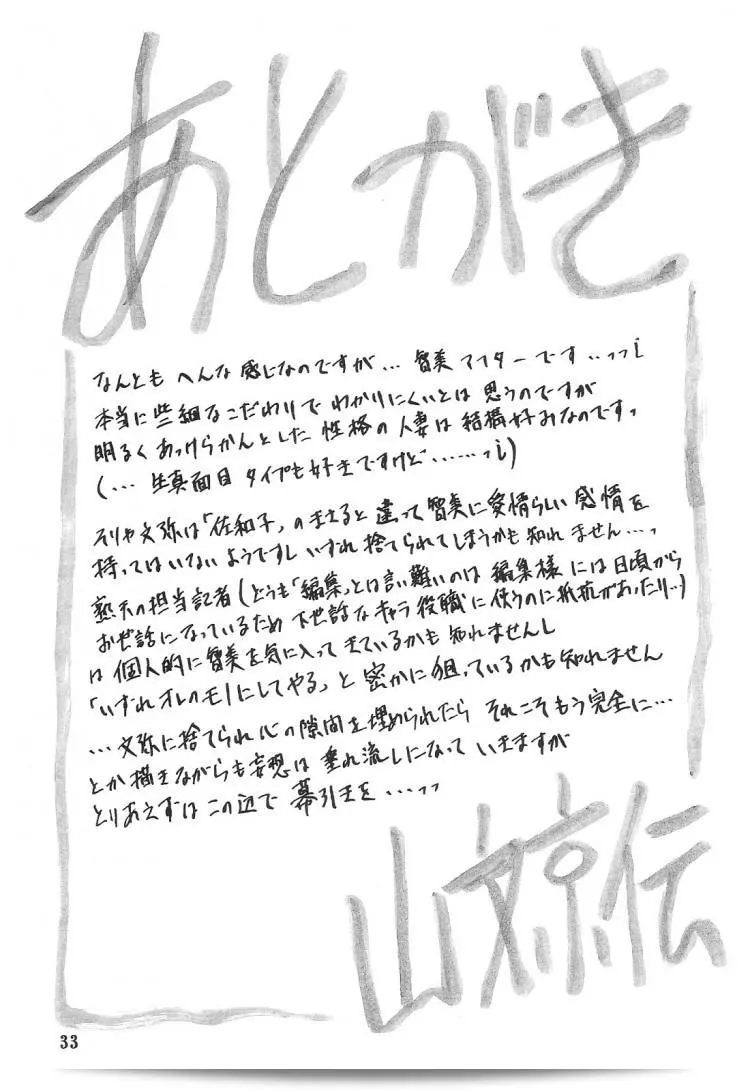 あとがき
なんとも へんな 感じなのですが… 智美 アフターです‥っっ¡
本当に 些細な こだわりで わかりにくいとは 思うのですが
明るく あっけらかんとした 性格の 人妻は 結構好みなのですっ
(… 生真面目 タイプも好きですけど……っ¡)
そりゃ 文弥は「佐和子」の
違って 智美に 愛情らしい 感情を
持ってはいないようですし いずれ 捨てられてしまうかも知れません…っ
の担当記者(どうも「編集」とは言い難いのは 編集様 には 日頃から
お世話に なっているため 下世話な キャラ 役職に 使うのに 抵抗があったり‥)
は 個人的に 智美を気に入って きているかも 知れませんし
「いずれ オレのモノにしてやる」と 密かに 狙っているかも知れません
… 文弥に 捨てられ 心の 隙間を 埋められたら それこそ もう 完全に…
とか 描きながらも 妄想は 垂れ流しになって いきますが
とりあえずは この辺で 幕引きを …っっ
山文京伝
33